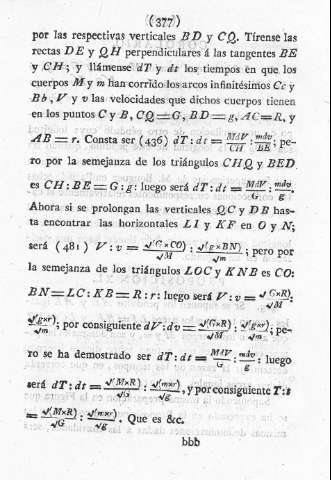 (377)
por las respectivas verticales BD y CQ. Tírense las
rectas DE y QH perpendiculares á las tangentes BE
y CH; y llámense dT y dt los tiempos en que los
cuerpos M y m han corrido los arcos infinitésimos Cc y
Bb, V y v las velocidades que dichos cuerpos tienen
en los puntos C y B, CQ=G, BD=g, AC=R, y
AB = r. Consta ser (436) dT : dt = MdV/CH : mdv/BE; pe-
ro por la semejanza de los triángulos CHQ y BED
es CH : BE = G : g: luego será dT : dt = MdV/G : mdv/g.
Ahora si se prolongan las verticales QC y DB has-
ta encontrar las horizontales LI y KF en O y N;
será (481) V : v = √(G×CO)/√M : √(g×BN)/√m; pero por
la semejanza de los triángulos LOC y KNB es CO:
BN=LC : KB=R : r: luego será V : v = √(G×R)/√M :
√(g×r)/√m; por consiguiente dV : dv = √(G×R)/√M : √(g×r)/√m; pe-
ro se ha demostrado ser dT : dt = MdV/G : mdv/g: luego
será dT : dt = √(M×R)/√G : √(m×r)/√g, y por consiguiente T : t
= √(M×R)/√G : √(m×r)/√g. Que es &c.
bbb